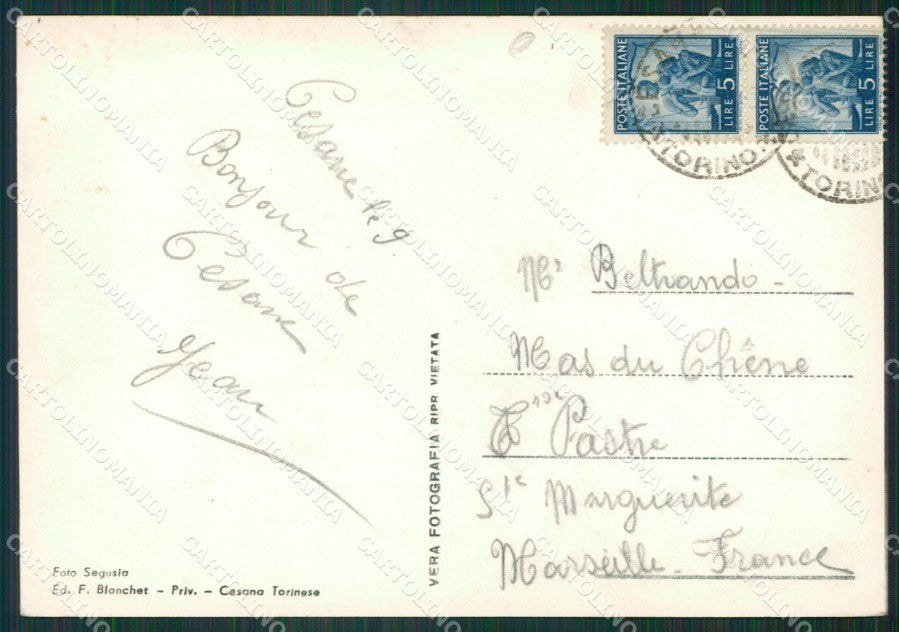 POSTE ITALIANE
LIRE 5 LIRE
POSTE ITALIANE
LIRE 5 LIRE
TORINO
TORINO
Césane le 9
Bonjour de
Césane
Jean
VERA FOTOGRAFIA RIPR. VIETATA
Mr Beltrando -
Mas du Chêne
Pastre
Ste Marguerite
Marseille. France
Foto Segusia
Ed. F. Blanchet - Priv. - Cesana Torinese
CARTOLINOMANIA